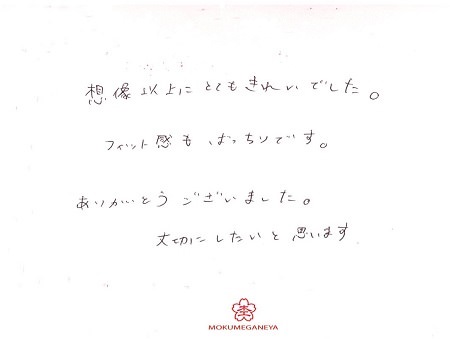 想像以上にとてもきれいでした。
フィット感もばっちりです。
ありがとうございました。
大切にしたいと思います
MOKUMEGANEYA